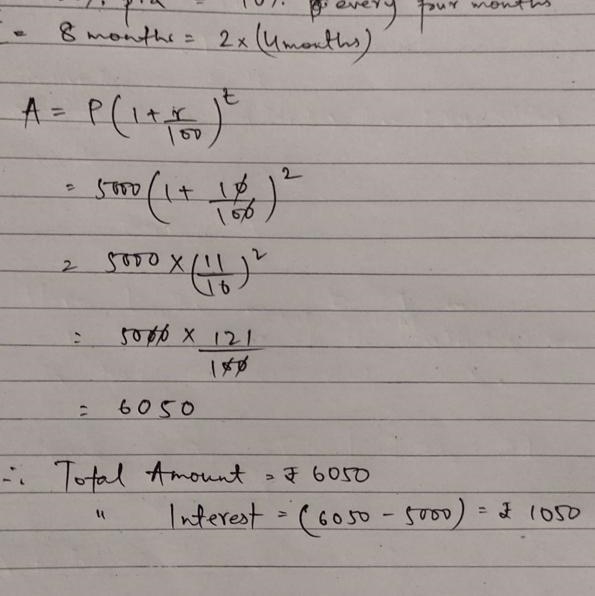 = 10% p every four months
= 8 months = 2 × (4 months)
A = P(1 + r/100)^t
= 5000(1 + 10/100)^2
= 5000 × (11/10)^2
= 5000 × 121/100
= 6050
∴ Total Amount = ₹ 6050
" Interest = (6050 - 5000) = ₹ 1050